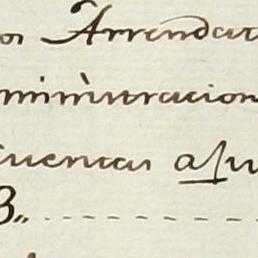 os Arrendat
ministracion
cuentas asu
B.,,